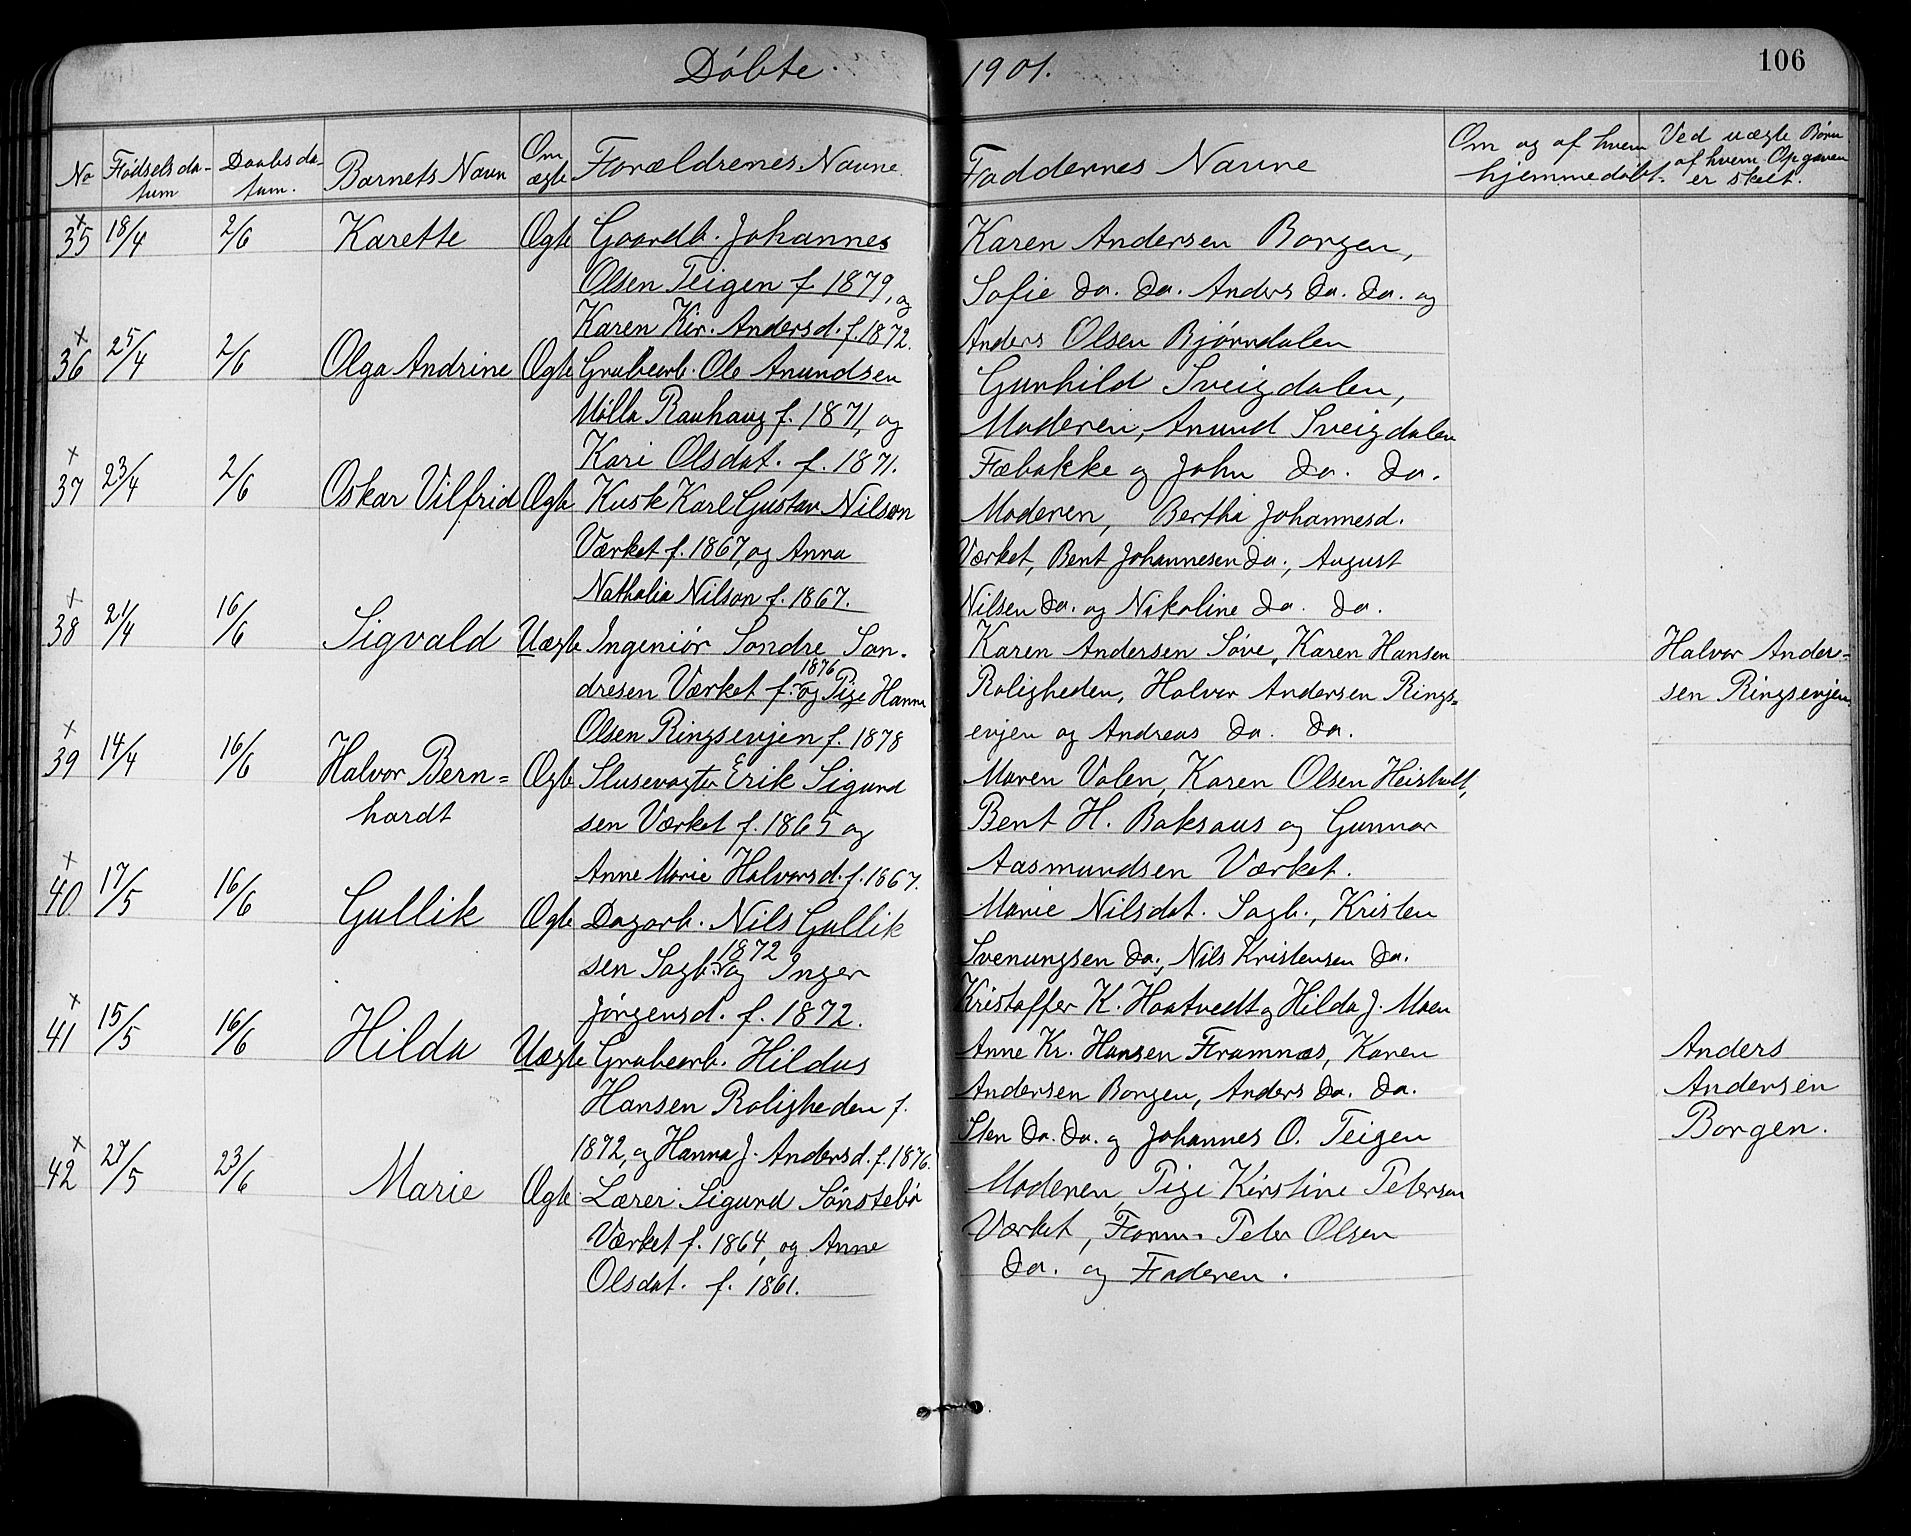 Døbte.
1901.
106
No
Fødselsda-
tum
Daabsda-
tum.
Barnets Navn
Om
ægte
Forældrenes Navne.
Faddernes Navne
Om og af hvem
hjemmedøbt.
Ved uægte Børn
af hvem Opgaven
er skeet.
35 18/4 2/6 Karette Ægte Gaardb. Johannes
Olsen Teigen f 1879, og
Karen Kir. Andersd. f. 1872.
Karen Andersen Borgen,
Sofie do. do. Anders do. do. og
Anders Olsen Bjørndalen
36 25/4 2/6 Olga Andrine Ægte Grubearb. Ole Anundsen
Mølla Rauhaug f. 1871, og
Kari Olsdat. f. 1871.
Gunhild Sveigdalen,
Moderen, Anund Sveigdalen
Fæbakke og John do. do.
37 23/4 2/6 Oskar Vilfrid Ægte Kusk Karl Gustav Nilson
Værket f. 1867, og Anna
Nathalia Nilson f. 1867.
Moderen, Bertha Johannesd.
Værket, Bent Johannesen do., August
Nilsen do. og Nikoline do. do.
38 21/4 16/6 Sigvald Uægte Ingeniør Sondre Son.
dresen Værket f. 1876 og Pige Hanna
Olsen Ringsevjen f. 1878
Karen Andersen Søve, Karen Hansen
Roligheden, Halvor Andersen Rings=
evjen og Andreas do. do.
Halvor Ander=
sen Ringsevjen.
39 14/4 16/6 Halvor Bern=
hardt
Ægte Slusevogter Erik Sigurd
sen Værket f. 1865 og
Anne Marie Halvorsd. f. 1867.
Maren Valen, Karen Olsen Heisholt,
Bent H. Baksaus og Gunnar
Aasmundsen Værket.
40 17/5 16/6 Gullik Ægte Dagarb. Nils Gullik
sen Sagb. f. 1872 og Inger
Jørgensd. f. 1872.
Marie Nilsdat. Sagb., Kristen
Svenungsen do., Nils Kristensen do.
Kristoffer K. Haatvedt og Hilda J. Moen
41 15/5 16/6 Hilda Uægte Grubearb. Hildus
Hansen Roligheden f.
1872, og Hanna J. Andersd. f. 1876.
Anne Kr. Hansen Framnæs, Karen
Andersen Borgen, Anders do. do.
Sten do. do. og Johannes O. Teigen
Anders
Andersen
Borgen.
42 27/5 23/6 Marie Ægte Lærer Sigurd Sønstebø
Værket f. 1864, og Anne
Olsdat. f. 1861.
Moderen, Pige Kirstine Petersen
Værket, Form. Peter Olsen
do. og Faderen.